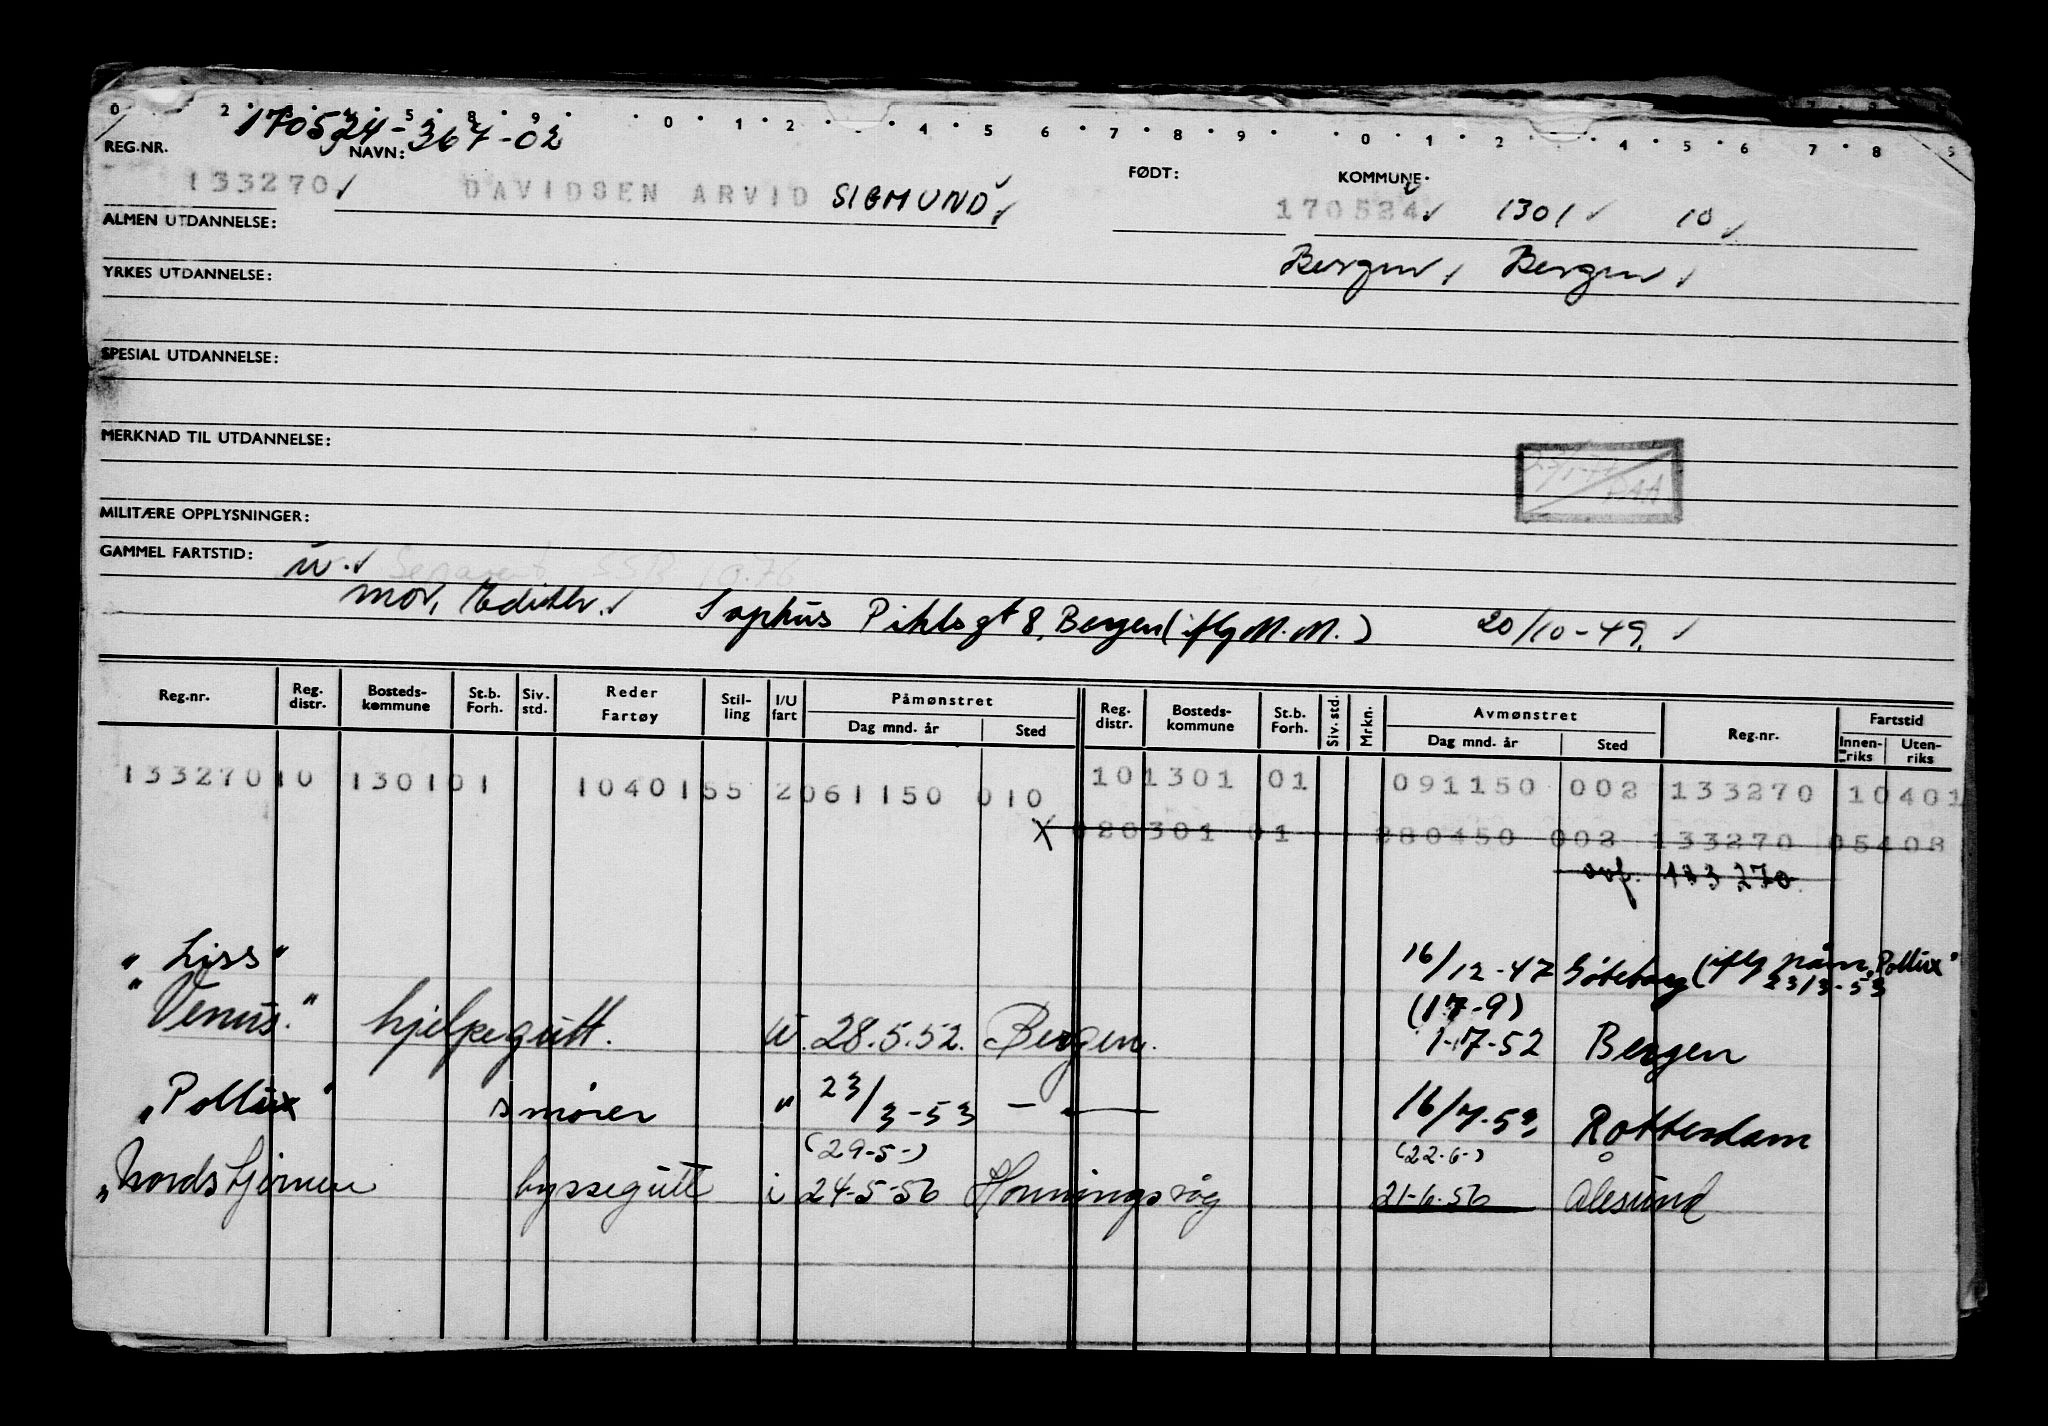 0 2 5 8 9 0 1 2 4 5 6 7 8 9 0 1 2 4 5 6 7 8 9
170524-367-02
REG.NR. NAVN: FØDT: KOMMUNE.
133270 DAVIDSEN ARVID SIGMUND 170524 1301 10
ALMEN UTDANNELSE:
Bergen, Bergen
YRKES UTDANNELSE:
SPESIAL UTDANNELSE:
MERKNAD TIL UTDANNELSE:
MILITÆRE OPPLYSNINGER:
GAMMEL FARTSTID: Separert SSB 10.76
mor, Edith. Sophus Pihlsgt 8, Bergen (iflg M.M.) 20/10-49.
Reg.nr. Reg. distr. Bosteds-kommune St.b. Forh. Siv. std. Reder Fartøy Stil-ling I/U fart Påmønstret Dag mnd. år Sted Reg. distr. Bosteds-kommune St.b. Forh. Siv. std. Mrkn. Avmønstret Dag mnd. år Sted Reg.nr. Fartstid Innen-riks Uten-riks
133270 10 1301 01 1040155 2 061150 010 10 1301 01 091150 002 133270 10401
X 020301 01 280450 002 133270 05408
ovf. 133270
"Liss" 16/12-47 Göteborg (iflg påm. "Pollux" 23/3-53
(17-9)
"Venus." hjelpegutt. u. 28.5.52. Bergen. 1-7-52 Bergen
"Pollux" smører " 23/3-53 — " — 16/7-53 Rotterdam
(29-5-) (22-6-)
"Nordstjernen byssegutt i 24-5-56 Honningsvåg 21-6-56 Ålesund